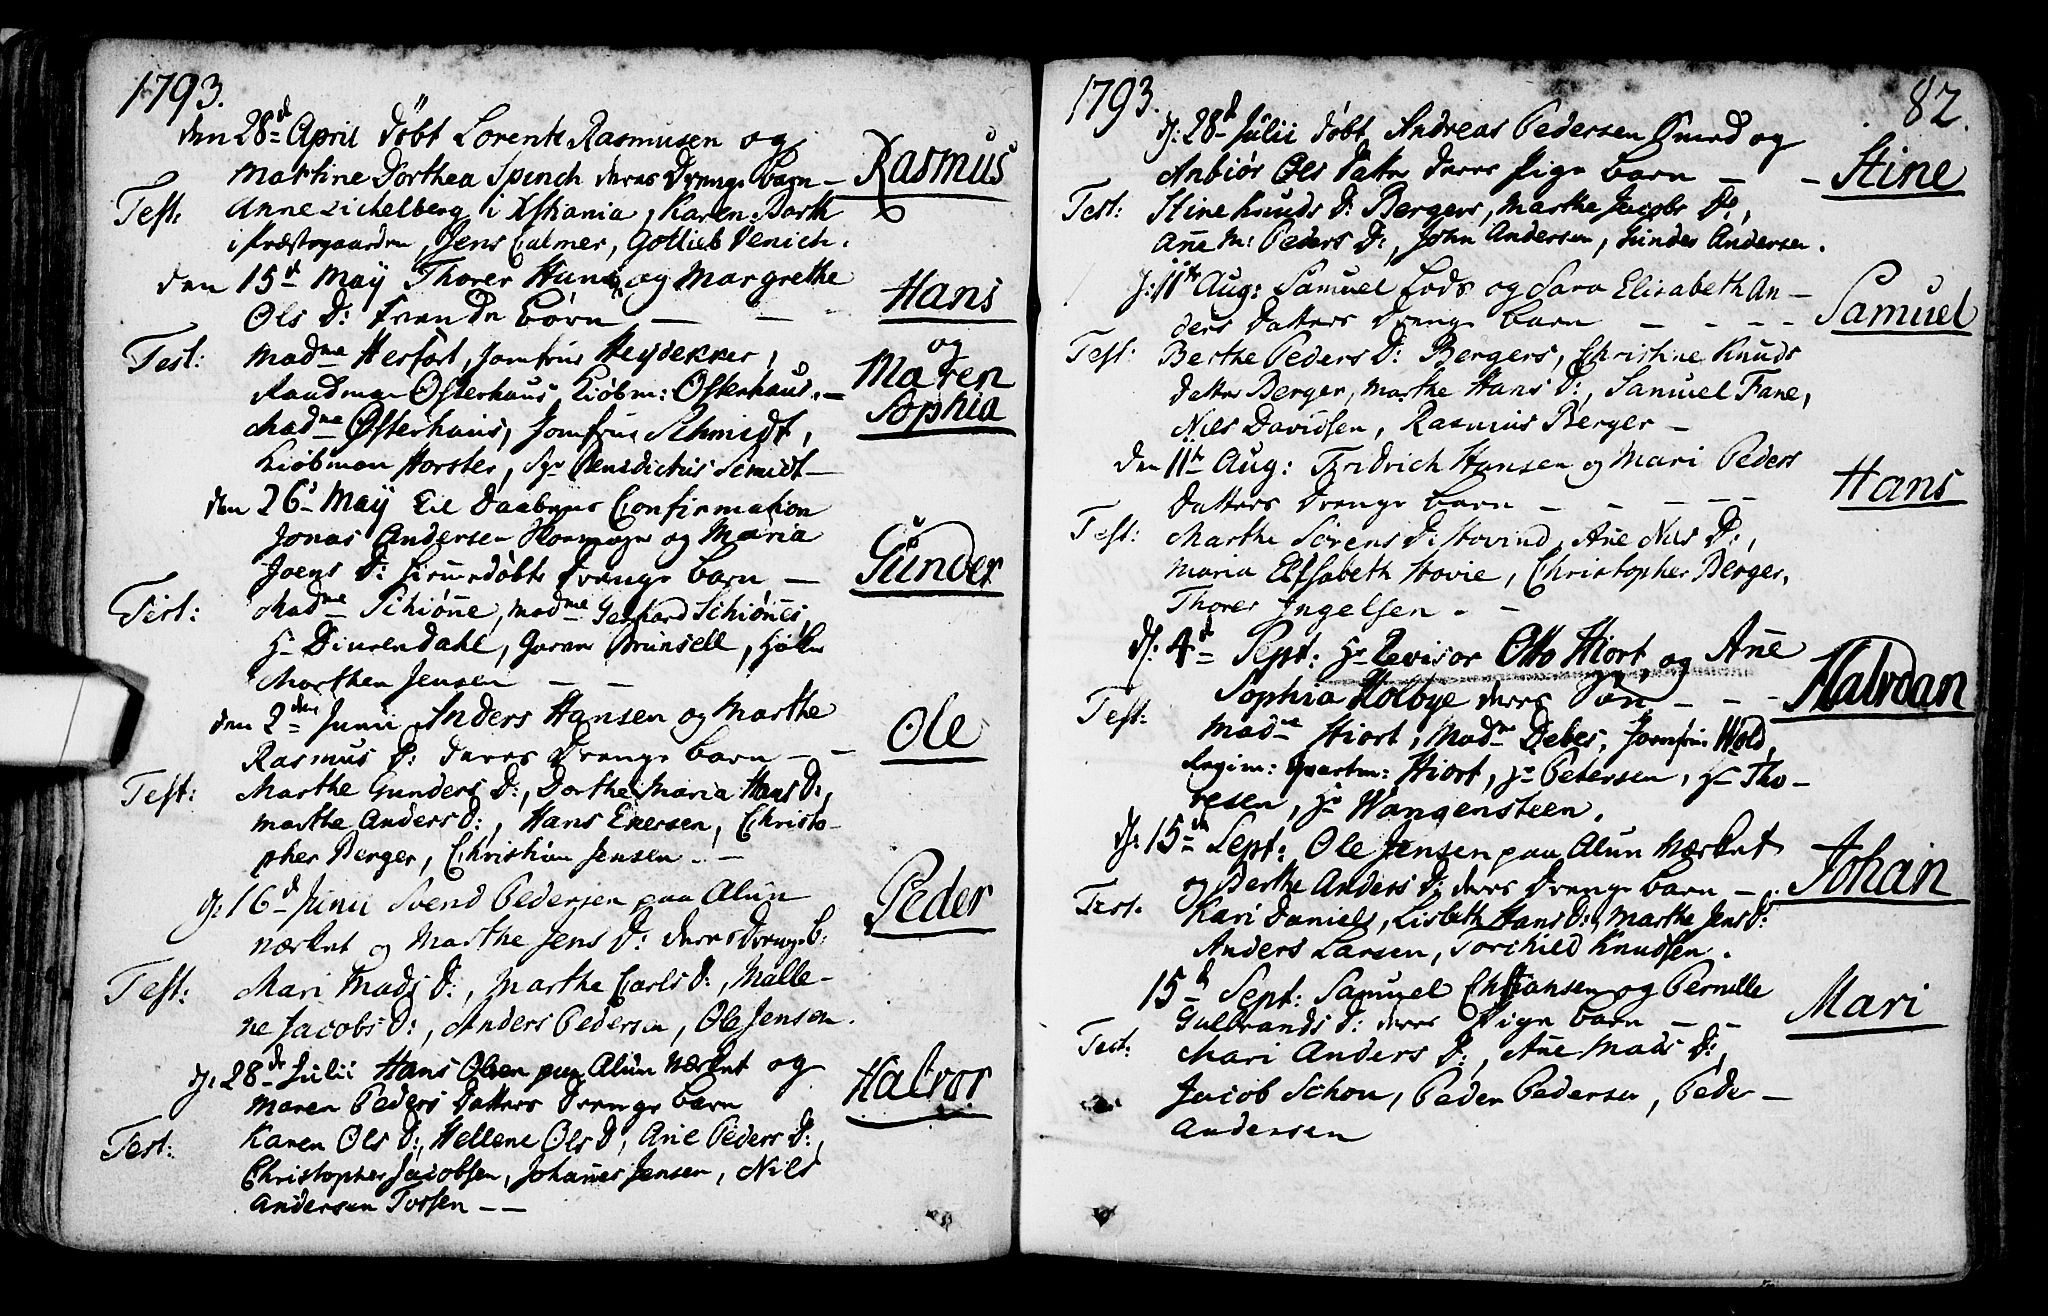 1793.
den 28d April döbt Lorents Rasmusen og
Martine Dorthea Spinch deres Drenge barn – Rasmus
Test: Anne Eichelberg i Xstiania, Karen Barth
i Præstegaarden, Jens Calmer, Gotlieb Venich.
den 15d May Thorer Hund og Margrethe
Ols D: tvende börn – – Hans
og
Maren
Sophia
Test: Madme Herfort, Jomfrue Heydekker,
Raadman Osterhaus, Kiöbm: Osterhaus. –
Madme Østerhaus, Jomfrue Schmidt,
Kiöbman Horster, Sr Benedictus Semidt –
den 26d May til Daabens Confirmation
Jonas Andersen og Maria
Joens D: hiemedöbte Drenge barn – Günder
Test: Madme Schiönne, Madme Gerhard Schiönnes,
Hr Diurendahl, Joran Brunsell,
Morthen Jensen – –
den 2den Junii Anders Hansen og Marthe
Rasmus D: deres Drenge barn – – Ole
Test: Marthe Gunders D:, Dorthe Maria Hans D:,
Marthe Anders D:, Hans Eversen, Christo-
pher Berger, Christian Jensen. –
d: 16d Junii Svend Pedersen paa Alun
værket og Marthe Jens D: deres Drenge b: Peder
Test: Mari Mads D:, Marthe Carls D:, Malle-
ne Jacobs D:, Anders Pedersen, Ole Jensen.
d: 28de Julii Hans Olsen paa Alun værket og
Maren Peders Datters Drenge barn Halvor
Test: Karen Ols D:, Hellene Ols D, Ane Peders D:,
Christopher Jacobsen, Johannes Jensen, Nils
Andersen Torsen – –
1793. 82.
d: 28d Julii döbt Andreas Pedersen Smed og
Anbiör Ols Datter deres Pige barn – – Stine
Test: Stine Knuds D: Bergers, Marthe Jacobs D:,
Ane M: Peders D:, John Andersen, Gunder Andersen.
d: 11te Aug: Samuel Lods og Sara Elisabeth An-
ders Datters Drenge barn – – – – Samuel
Test: Berthe Peders D: Bergers, Christine Knuds
datter Berger, Marthe Hans D:, Samuel Fane,
Niels Davidsen, Rasmus Berger –
den 11te Aug: Fridrich Hansen og Mari Peders
Datters Drenge barn – – – – Hans
Test: Marthe Sörens D: Hovind, Ane Nils D:,
Maria Elisabeth Hovie, Christopher Berger,
Thorer Ingelsen. –
d: 4d Sept: Hr Revisor Otto Hiort og Ane
Sophia Holbye deres sön – – – Halvdan
Test: Madme Hiort, Madme Debes, Jomfrue Wold,
Regim: Qvartm: Hiort, Hr Petersen, Hr Tho-
resen, Hr Wangensteen.
d: 15de Sept: Ole Jensen paa Alun Værket
og Berthe Anders D: deres Drenge barn – Johan
Test. Kari Daniels, Lisbeth Hans D:, Marthe Jens D:
Anders Larsen, Torchild Knudsen.
15d Sept: Samuel Christiansen og Pernille
Gulbrands D: deres Pige barn – – Mari
Test: Mari Anders D:, Ane Mads D:,
Jacob Schou, Peder Pedersen, Peder –
Andersen